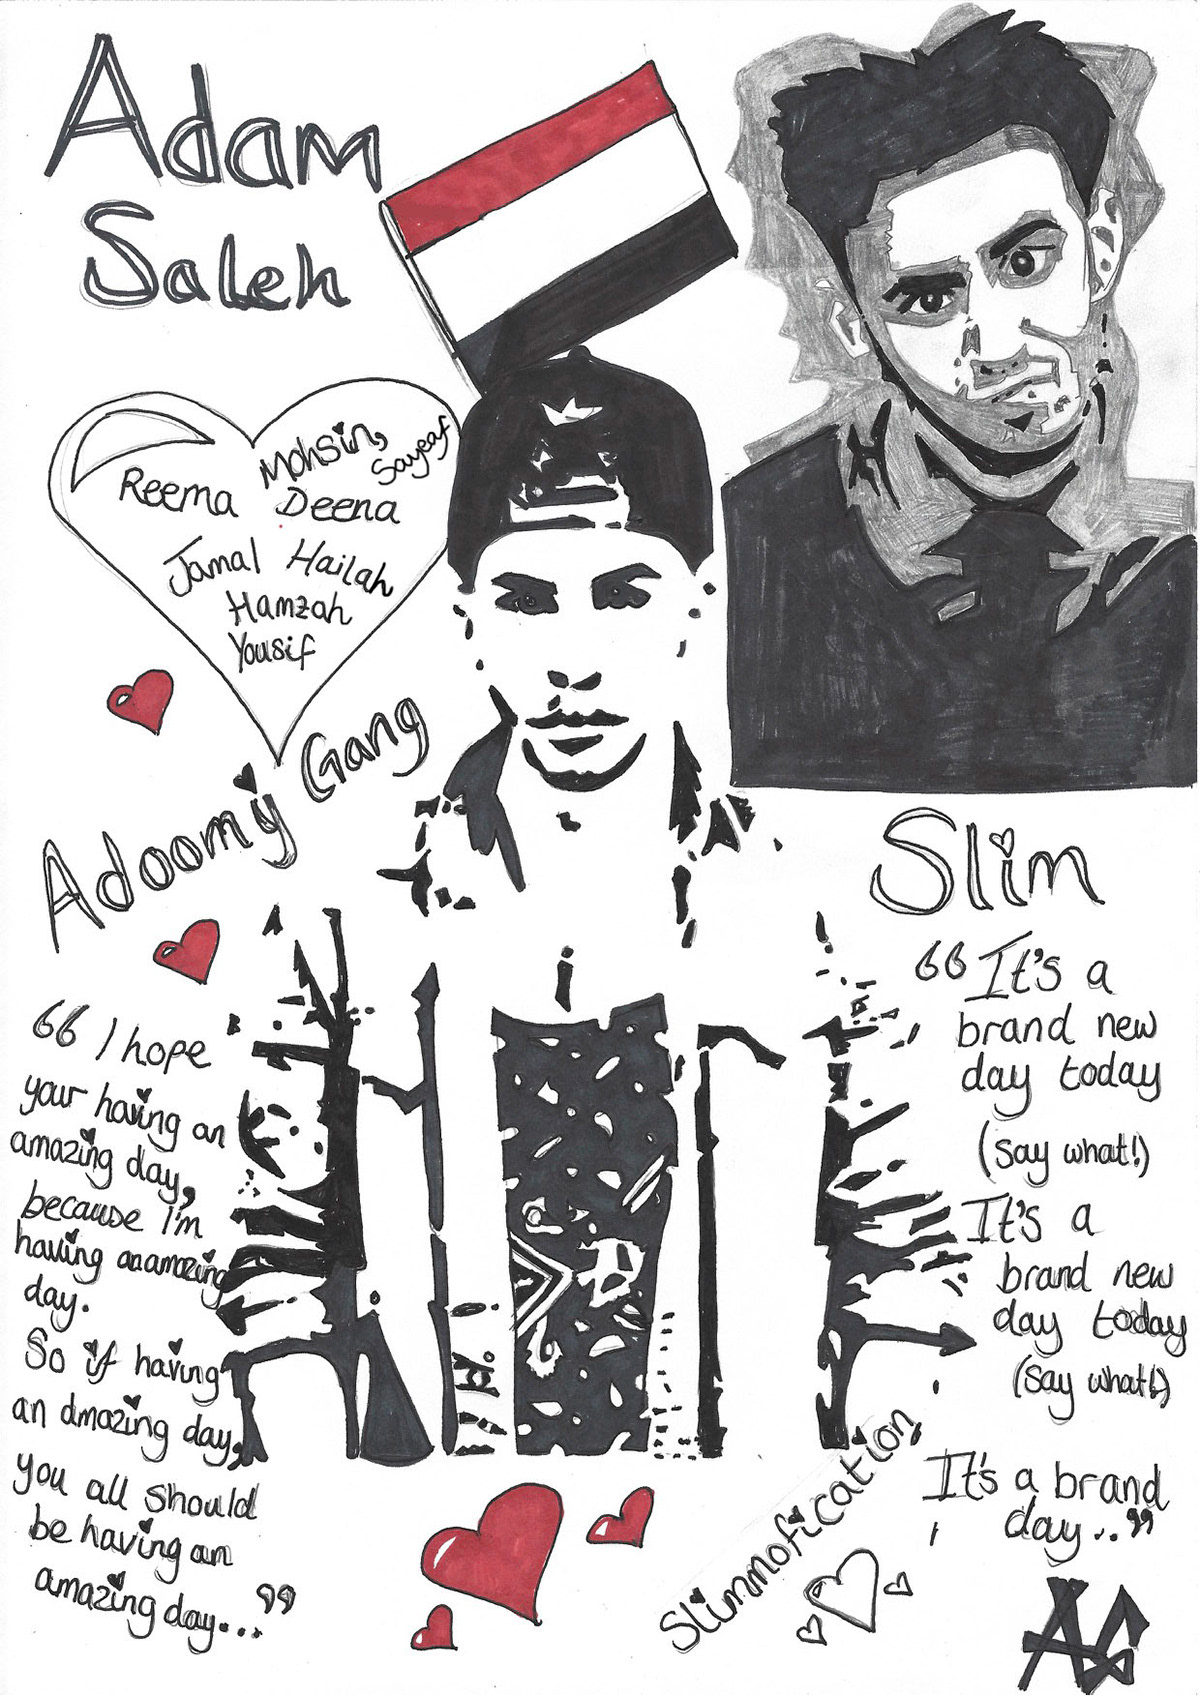 Adam
Saleh
Mohsin,
Sayeaf
Reema
Deena
Jamal Hailah
Hamzah
Yousif
Adoomy Gang
“ I hope
your having an
amazing day,
because I'm
having an amazing
day.
So if having
an amazing day,
you all should
be having an
amazing day...”
Slim
“ It's a
brand new
day today
(say what!)
It's a
brand new
day today
(say what!)
It's a brand
day..”
Slimmofication
AS